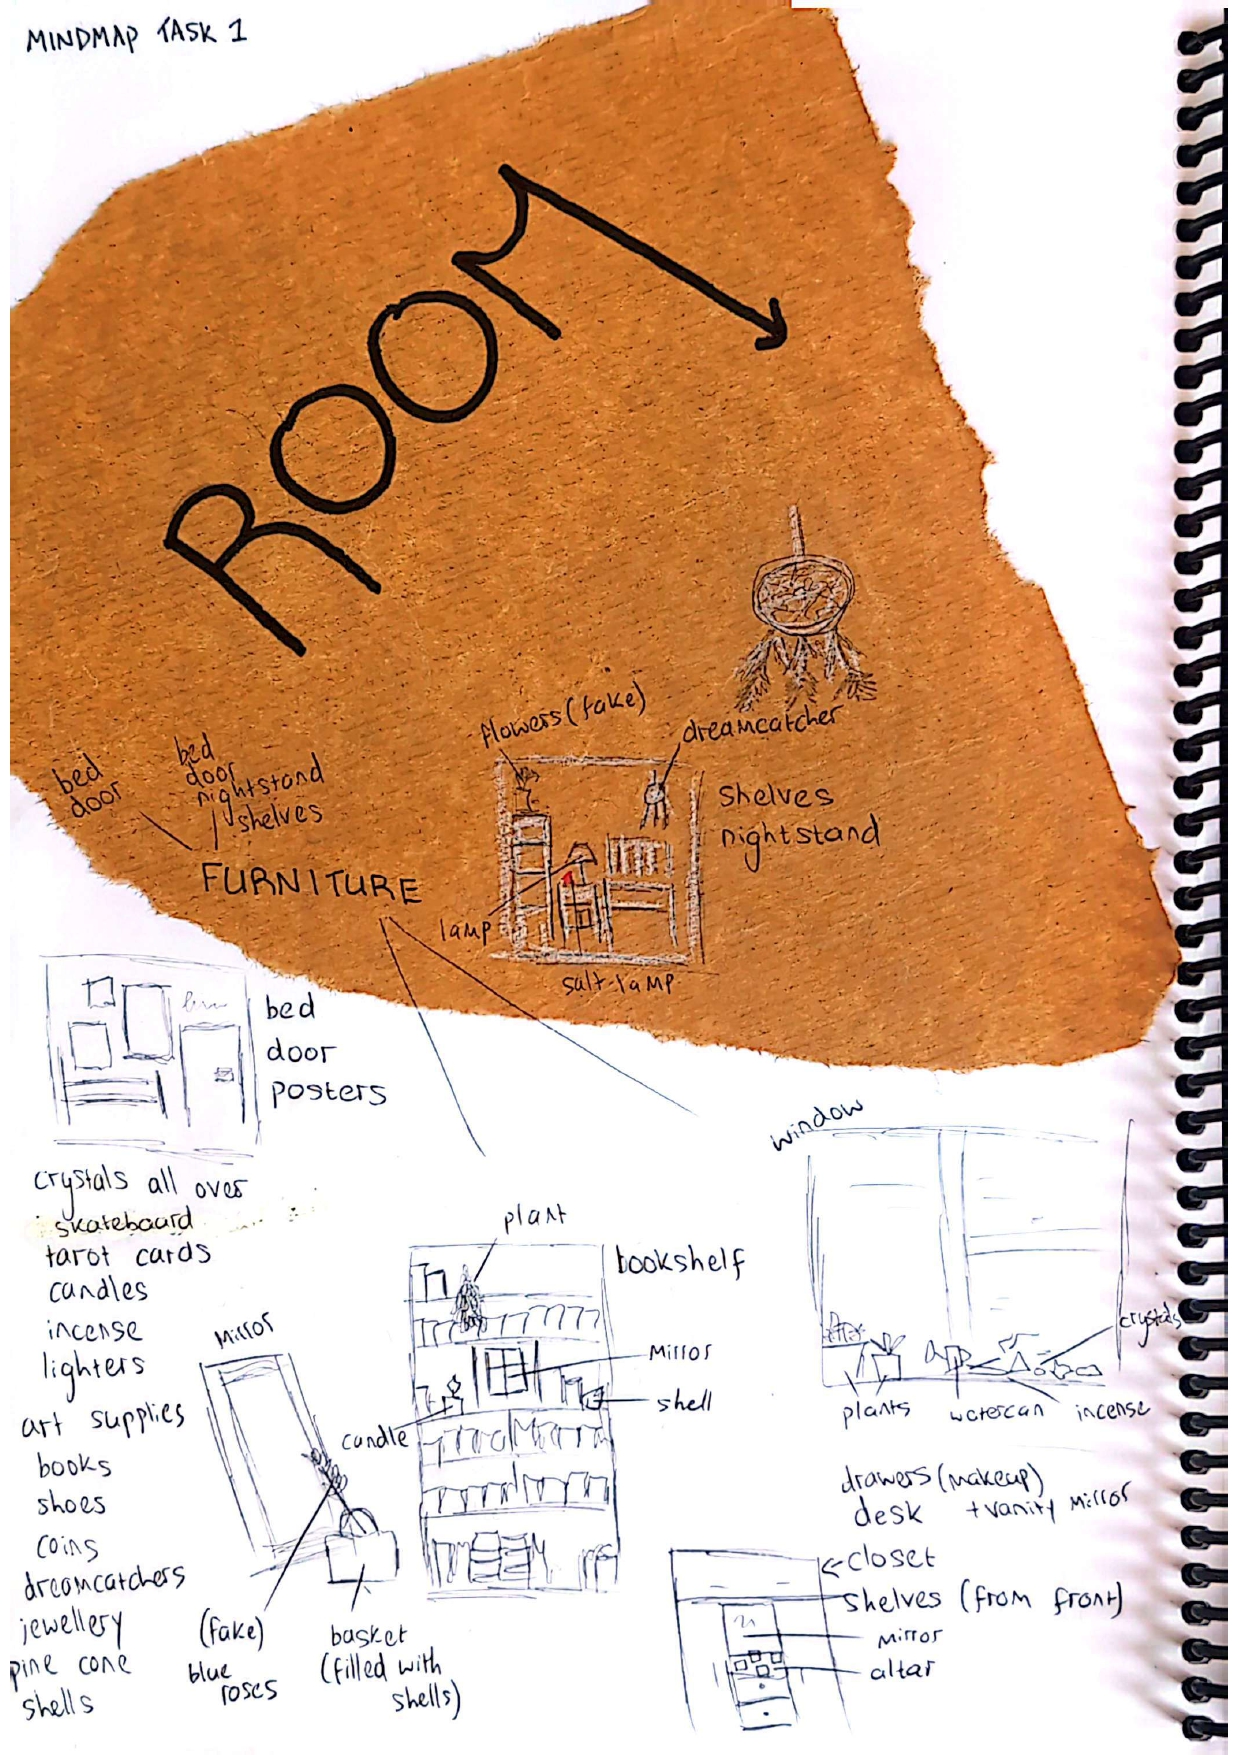 MINDMAP TASK 1
ROOM
flowers (fake)
dreamcatcher
bed
door
bed
door
nightstand
shelves
shelves
nightstand
FURNITURE
lamp
salt-lamp
bed
door
posters
window
crystals all over
skateboard
tarot cards
candles
incense
lighters
art supplies
books
shoes
coins
dreamcatchers
jewellery
pine cone
shells
Mirror
(fake)
blue
roses
basket
(filled with
shells)
plant
bookshelf
Mirror
shell
candle
crystals
plants
watercan
incense
drawers (makeup)
desk + vanity Mirror
closet
shelves (from front)
Mirror
altar